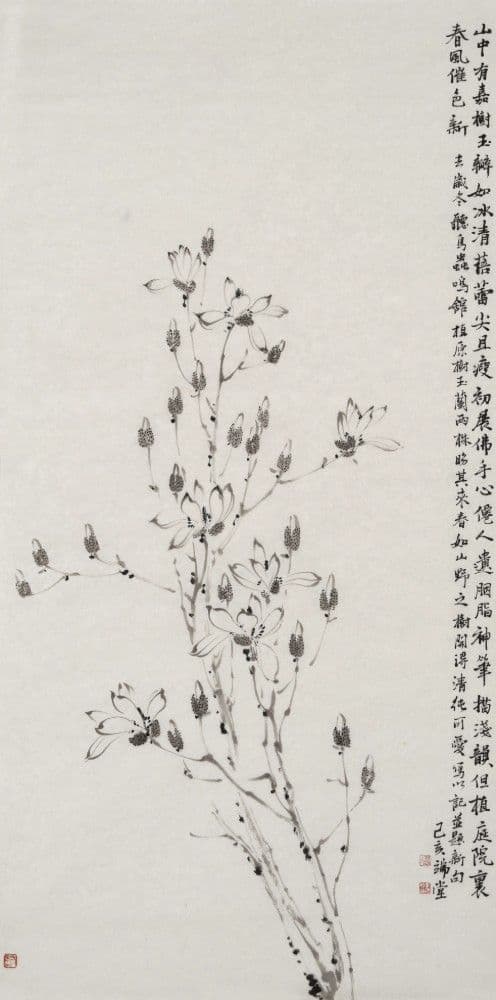 山中有嘉樹玉瓣如冰清蓓蕾尖且瘦初展佛手心僊人遺胭脂神筆描淺韻但植庭院裏
春風催色新 去歲冬聽鳥蟲鳴館植原樹玉蘭兩株盼其來春如山野之樹開得清純可愛寫以記並題新句
己亥端堂